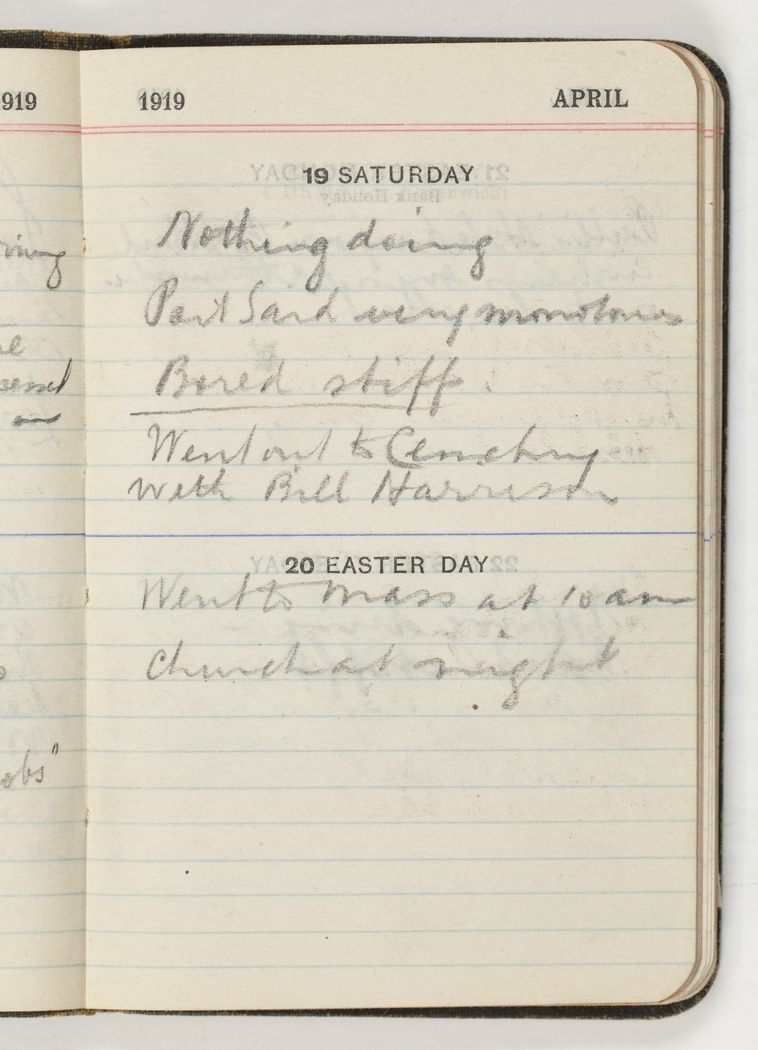 919
1919 APRIL
19 SATURDAY
Nothing doing
Port Said very monotonous
Bored stiff.
Went out to Cemetery
with Bill Harrison
20 EASTER DAY
Went to Mass at 10 am
Church at night
obs"